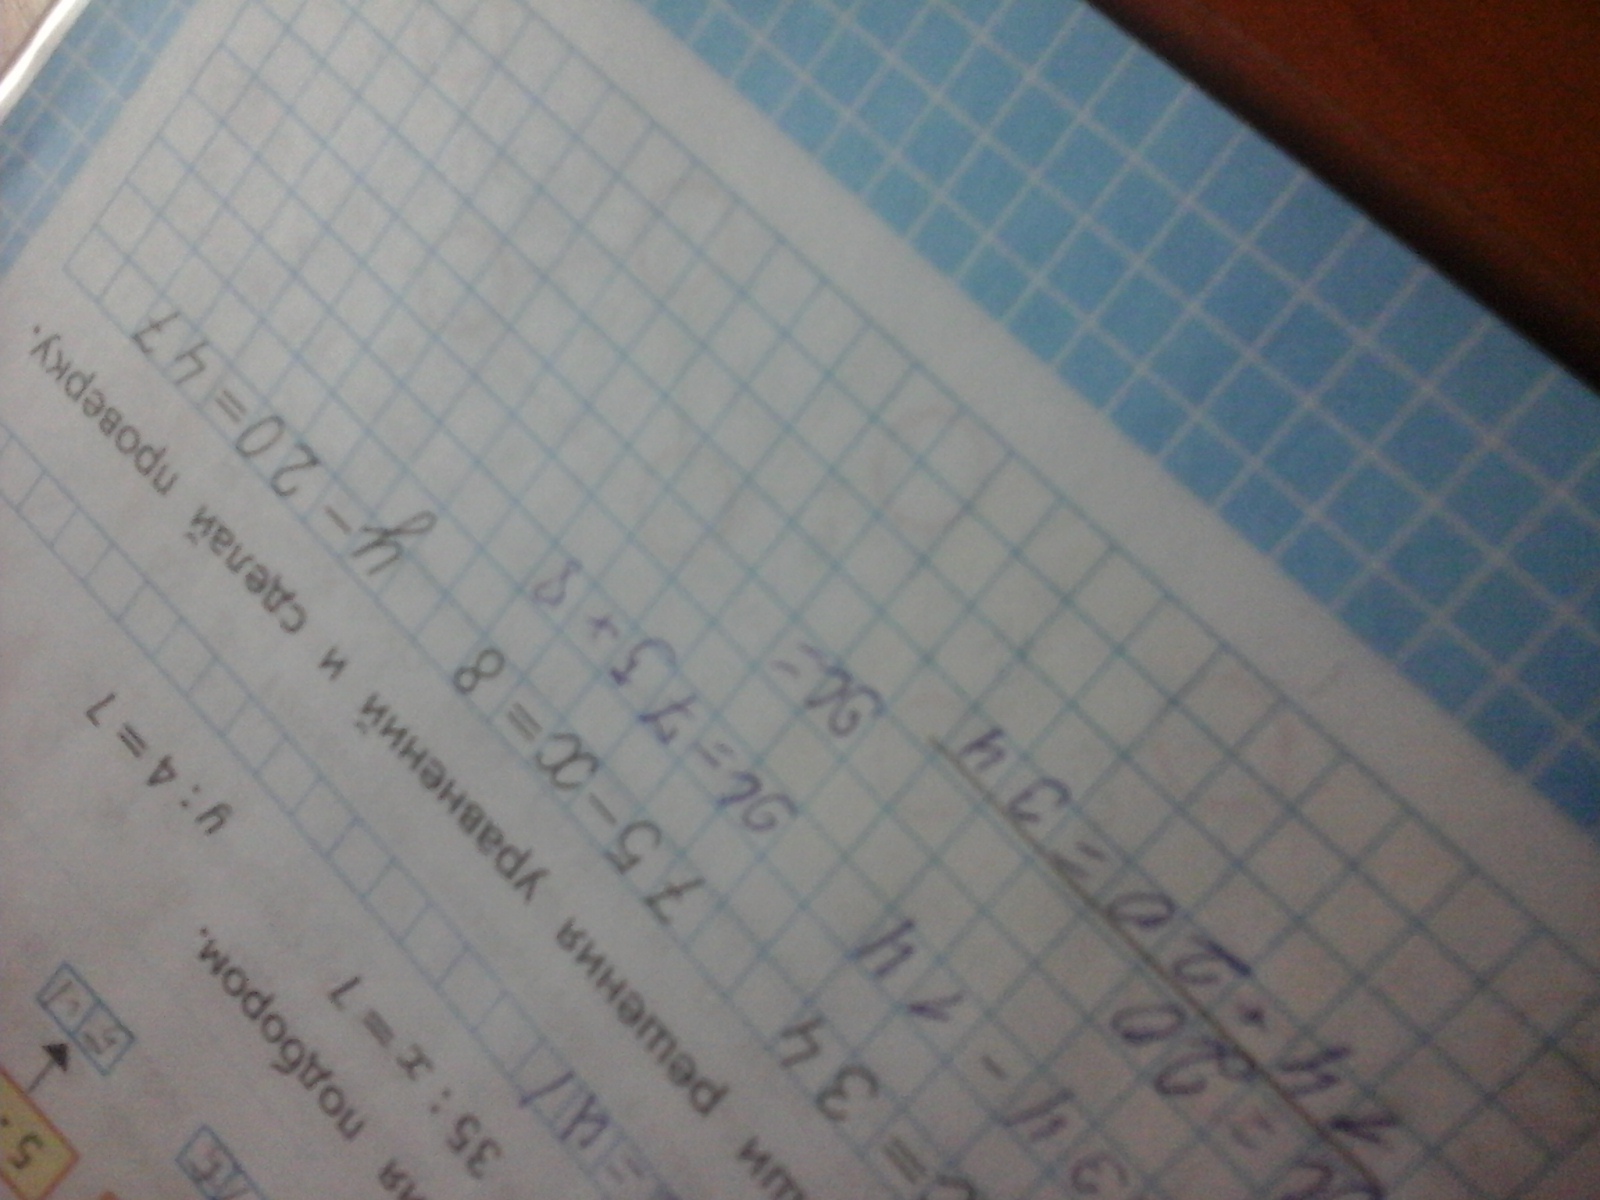 5 :
15
подбором.
35 : x = 7
y : 4 = 7
решения уравнений и сделай проверку.
= 34
75 - x = 8
y - 20 = 47
34 - 14
x = 75 + 8
x = 20
x =
14 + 20 = 34